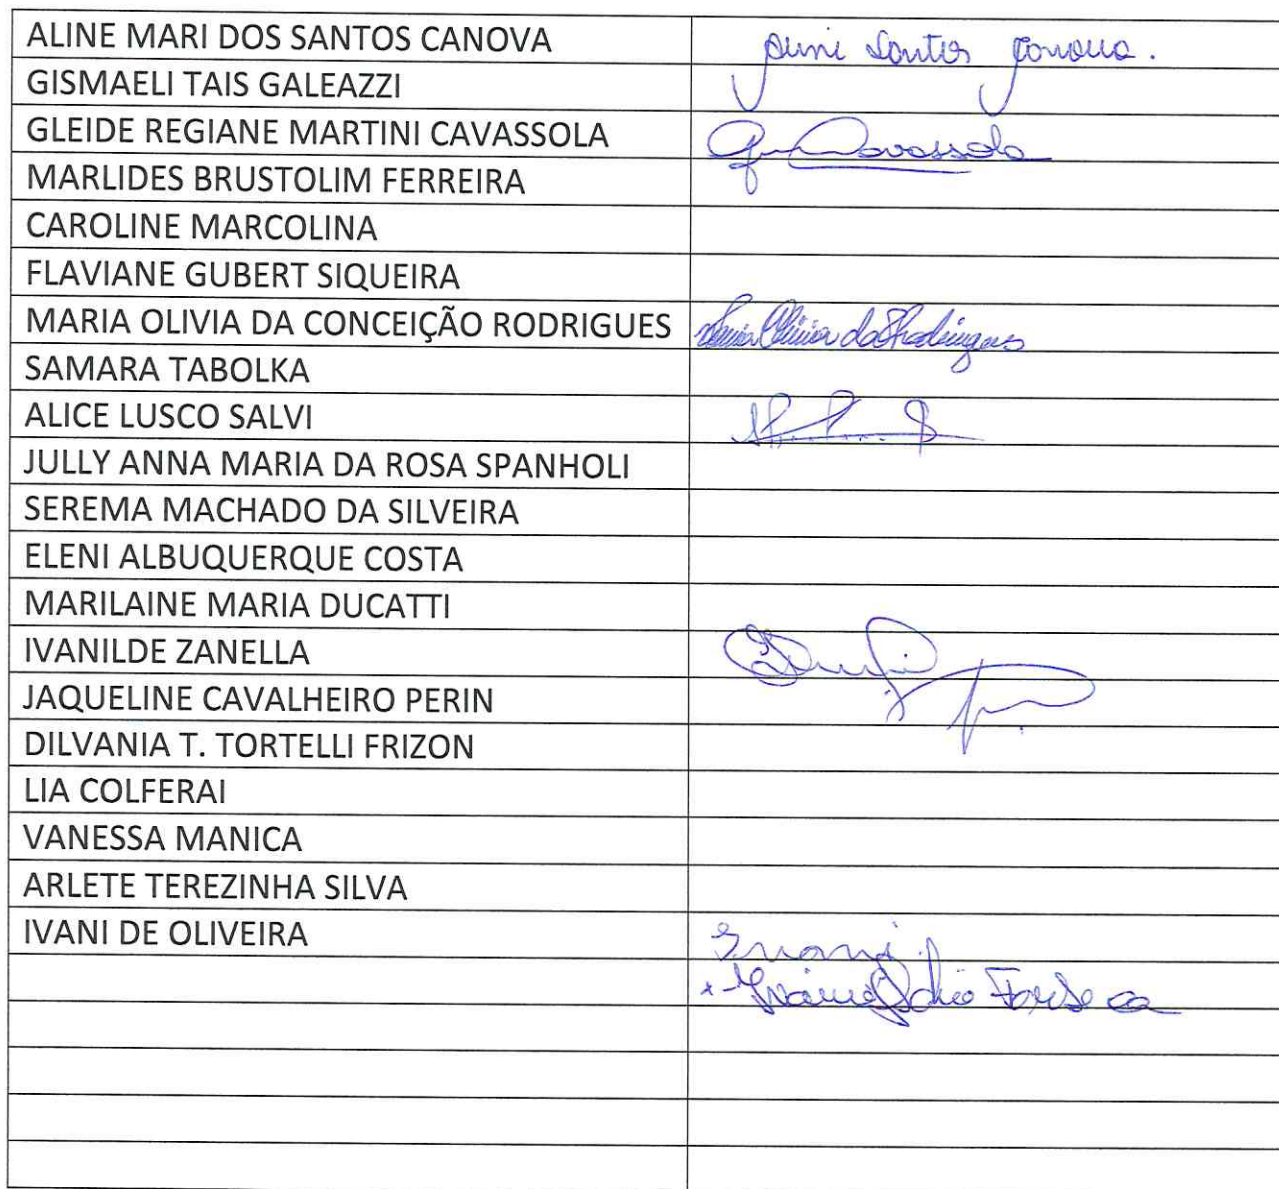 ALINE MARI DOS SANTOS CANOVA Santos
GISMAELI TAIS GALEAZZI
GLEIDE REGIANE MARTINI CAVASSOLA Cavassola
MARLIDES BRUSTOLIM FERREIRA
CAROLINE MARCOLINA
FLAVIANE GUBERT SIQUEIRA
MARIA OLIVIA DA CONCEIÇÃO RODRIGUES Maria Olivia da Rodrigues
SAMARA TABOLKA
ALICE LUSCO SALVI
JULLY ANNA MARIA DA ROSA SPANHOLI
SEREMA MACHADO DA SILVEIRA
ELENI ALBUQUERQUE COSTA
MARILAINE MARIA DUCATTI
IVANILDE ZANELLA
JAQUELINE CAVALHEIRO PERIN
DILVANIA T. TORTELLI FRIZON
LIA COLFERAI
VANESSA MANICA
ARLETE TEREZINHA SILVA
IVANI DE OLIVEIRA Ivani
Fonseca